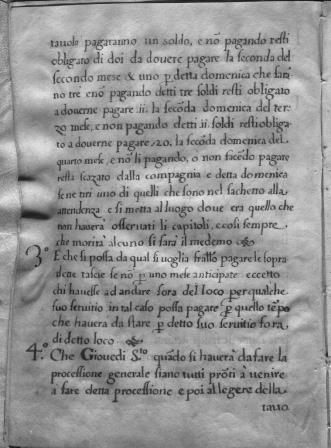 tauolo pagaranno un soldo, e nō pagando resti
obligato di doi da douere pagare la seconda del
secondo mese & uno p detta domenica che sarā
no tre e nō pagando detti tre soldi resti obligato
a douerne pagare .ii. la secōda domenica del ter-
zo mese, e non pagando detti .ii. soldi resti obliga-
to a douerne pagare 20. la secōda domenica del
quarto mese, e nō li pagando, o non facēdo pagare
resta scazato dalla compagnia e detta domenica
se ne tiri uno di quelli che sono nel sachetto alla
attendenza e si metta al luogo doue era quello che
non hauera osseruati li capitoli, e cosi sempre
che morira alcuno si fara il medemo
3° E che si possa da qual si uoglia frallo pagare le sopra
dette tascie se nō p uno mese anticipate eccetto
chi hauesse ad andare fora del loco per qualche
suo seruitio in tal caso possa pagare p quello tēpo
che hauera da stare p detto suo seruitio fora,
di detto loco
4° Che Giouedi S.to quādo si hauera da fare la
processione generale siano tutti prōti à uenire
a fare detta processione e poi al legere della
tauo.